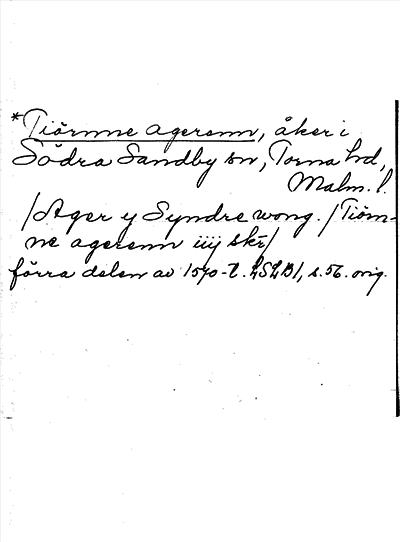 *Tiörnne agerenn, åker i
Södra Sandby sn, Torna hd,
Malm. l.
/Ager y Syndre wong. /Tiörn-
ne agerenn iiij skr/
förra delen av 1570-t. LSLB1, s. 56. orig.